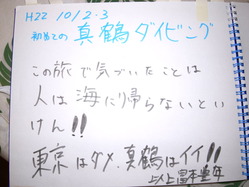 H22 10/2・3
初めての 真鶴ダイビング
この旅で気づいたことは
人は海に帰らないとい
けん!!
東京はダメ、真鶴はイイ!!